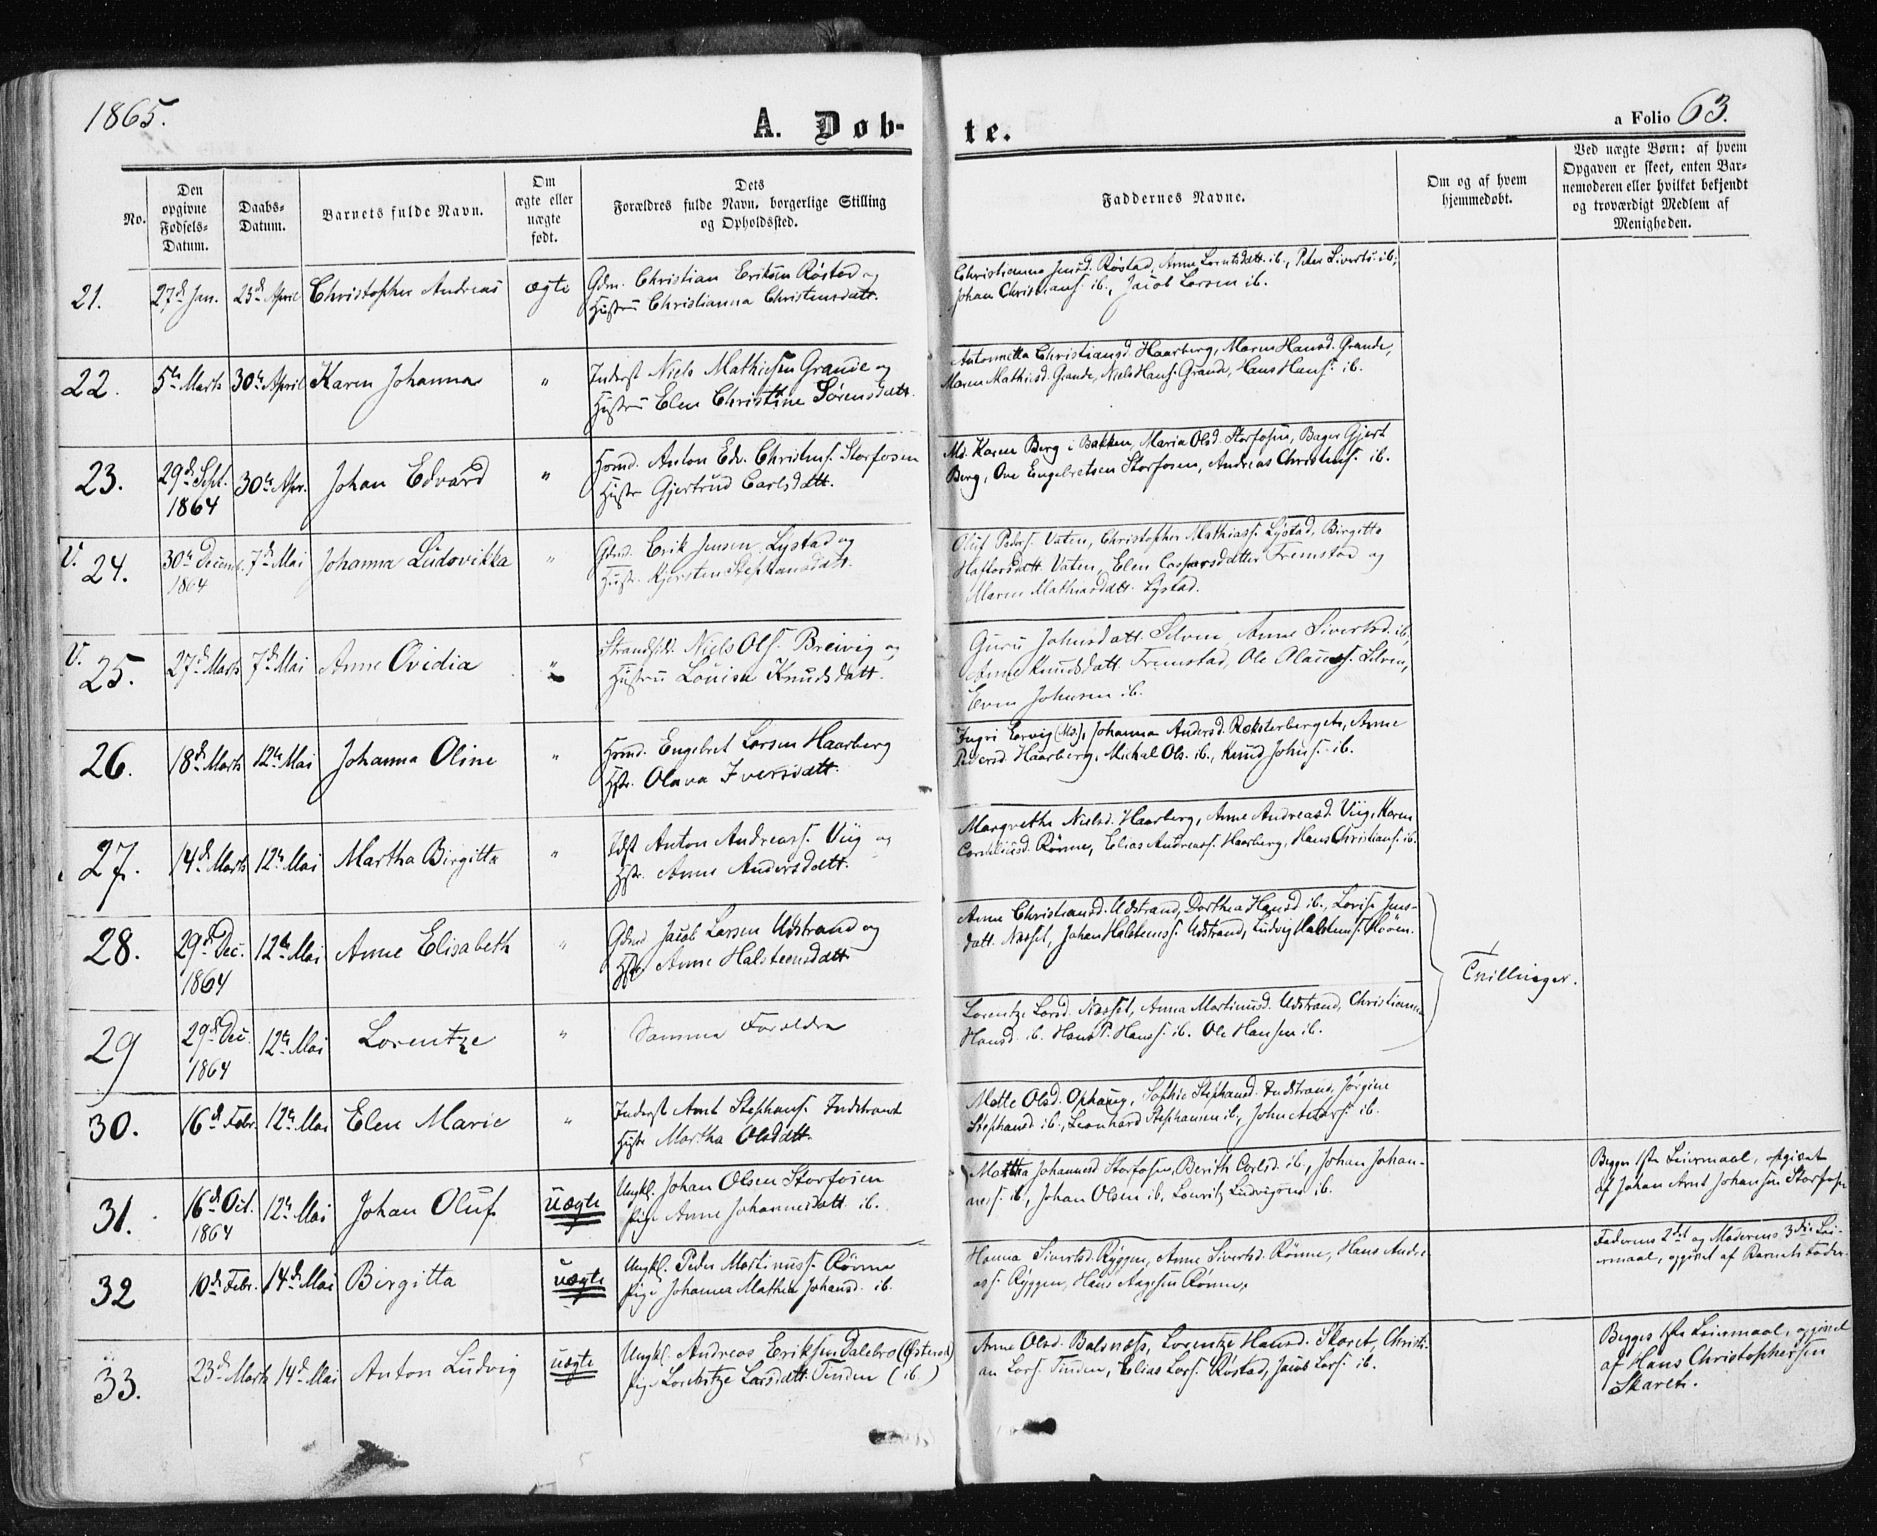 1865.
A. Døb-
te.
a Folio 63.
No.
Den
opgivne
Fødsels-
Datum.
Daabs-
Datum.
Barnets fulde Navn.
Om
ægte eller
uægte
født.
Dets
Forældres fulde Navn, borgerlige Stilling
og Opholdssted.
Faddernes Navne.
Om og af hvem
hjemmedøbt.
Ved uægte Børn: af hvem
Opgaven er skeet, enten Bar-
nemoderen eller hvilket bekjendt
og troværdigt Medlem af
Menigheden.
21.
27de Jan.
23de April
Christopher Andreas
ægte
Gdm. Christian Eriksen Røstad og
Hustru Christianna Christensdatt.
Christianna Jensd. Røstad, Anne Lorntsdatt. ib., Peter Siverts. ib.,
Johan Christians. ib., Jacob Larsen ib.
22.
5te Marts
30te April
Karen Johanna
"
Inderst Niels Mathiesen Grande og
Hustru Elen Christine Sørensdatt.
Antonnetta Christiansd. Haarberg, Maren Hansd. Grande,
Maren Mathiasd. Grande, Niels Hans. Grande, Hans Hans. ib.
23.
29de Sept.
1864
30te Apr.
Johan Edvard
"
Hmd. Anton Edv. Christens. Storfosen
Hustr. Gjertrud Carlsdatt.
Md. Karen Berg i Bakken, Maria Olsd. Storfosen, Bager Gjert
Berg, Ove Engebretsen Storfosen, Andreas Christens. ib.
V. 24.
30te Decemb.
1864
7de Mai
Johanna Ludovikka
"
Gdmd. Erik Jensen Lystad og
Hustr. Kjersten Stephansdatt.
Oluf Peders. Vaten, Christopher Mathiass. Lystad, Birgitte
Haftorsdatt. Vaten, Elen Caspersdatter Fremstad og
Maren Mathiasdatt. Lystad.
V. 25.
27de Marts
7de Mai
Anne Ovidia
"
Strands. Niels Ols. Breivig og
Hustru Louisa Knudsdatt.
Guru Johnsdatt. Selven, Anne Sivertsd. ib.,
Anne Knudsdatt. Fremstad, Ole Olauss. Selven,
Even Johnsen ib.
26.
18de Marts
12te Mai
Johanna Oline
"
Hmd. Engebret Larsen Haarberg
Hst. Olava Iversdatt.
Ingri Ervig (Md.), Johanna Andersd. Roksterberget, Anne
Pedersd. Haarberg, Michal Ols. ib., Knud Johns. ib.
27.
14de Marts
12te Mai
Martha Birgitta
"
Idst Anton Andreass. Viig og
Hst. Anne Andersdatt.
Margrethe Nielsd. Haarberg, Anne Andreasd. Viig, Karen
Corneliusd. Rønne, Elias Andreass. Haarberg, Hans Christians. ib.
28.
29de Dec.
1864
12te Mai
Anne Elisabeth
"
Gdmd Jacob Larsen Udstrand og
Hst. Anne Halsteensdatt.
Anne Christiansd. Udstrand, Dorthea Hansd. ib., Lovise Jens-
datt. Næsset, Johan Halstens. Udstrand, Ludvig Halstens.
Tvillinger.
29
29de Dec.
1864
12te Mai
Lorentze
"
Samme Forældre
Lorentze Larsd. Næsset, Anna Martinusd. Udstrand, Christianna
Hansd. ib. Hans P. Hanss. ib. Ole Hansen ib.
30.
16de Febr.
12te Mai
Elen Marie
"
Inderst Arnt Stephans. Indstrand
Hustr Martha Olsdatt.
Mette Olsd. Ophaug, Sophie Stephansd. Indstrand, Jørgine
Stephansd. ib., Leonhard Stephansen ib., John ib.
31.
16de Oct.
1864
12te Mai
Johan Oluf
uægte
Ungkl. Johan Olsen Storfosen
Pige Anne Johannesdatt. ib.
Martha Johannesd. Storfosen, Berith Carlsd. ib., Johan Johan-
ness. ib, Johan Olsen ib, Lauritz Ludvigsen ib.
Begges 1ste Leiermaal, opgivet
af Johan Arnt Johansen Storfosen
32
10de Febr.
14de Mai
Birgitta
uægte
Ungkl. Peder Martinuss. Rønne
Pige Johanna Mathea Johansd. ib.
Hanna Sivertsd. Ryggen, Anne Sivertsd. Rønne, Hans Andre-
ass. Ryggen, Hans Aagesen Rønne,
Faderens 2det og Moderens 3die Lei-
ermaal, opgivet af Barnets Fader.
33.
23de Marts
14de Mai
Anton Ludvig
uægte
Ungkl. Andreas Eriksen Dalebro (Østeraat)
Pige Lorentze Larsdatt. Tinden (ib)
Anne Olsd. Balsnæs, Lorentze Hansd. Skaret, Christi-
an Lars. Tinden, Elias Lars. Røstad, Jacob Lars. ib.
Begges 1ste Leiermaal, opgivet
af Hans Christophersen
Skaret.